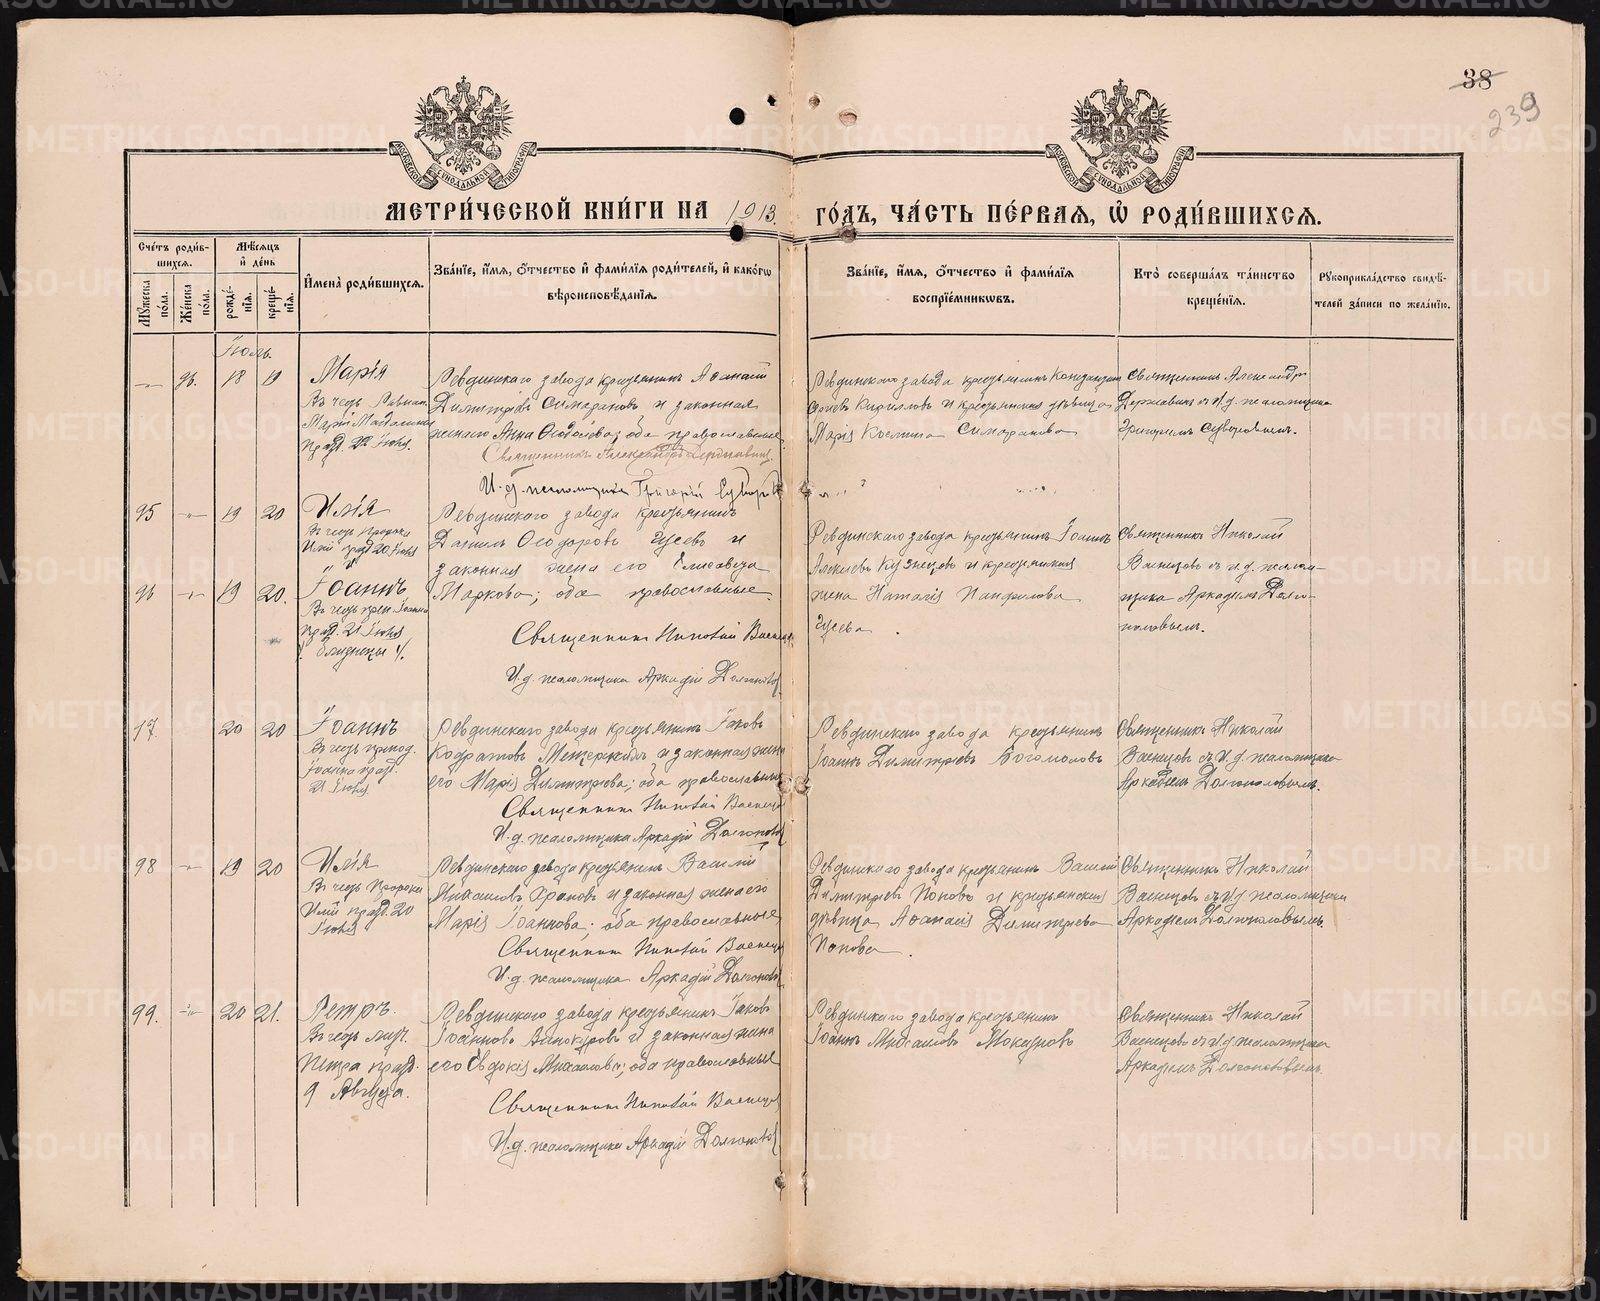 38
239
МОСКОВСКОЙ СѴНОДАЛЬНОЙ ТИПОГРАФІИ
МОСКОВСКОЙ СѴНОДАЛЬНОЙ ТИПОГРАФІИ
МЕТРИ́ЧЕСКОЙ КНИ́ГИ НА 1913
ГО́ДЪ, ЧА́СТЬ ПЕ́РВАѦ, Ѡ҆ РОДИ́ВШИХСѦ.
Сче́тъ роди́в-
шихсѧ.
Мꙋ́жеска по́ла.
Же́нска по́ла.
Мѣ́сѧцъ
и҆ де́нь
рожде́-
нїѧ.
креще́-
нїѧ.
И҆мена̀ роди́вшихсѧ.
Зва́нїе, и҆́мѧ, ѻ҆́тчество и҆ фами́лїѧ роди́телей, и҆ како́гѡ
вѣроисповѣ́данїѧ.
Зва́нїе, и҆́мѧ, ѻ҆́тчество и҆ фами́лїѧ
воспрїе́мникѡвъ.
Кто̀ соверша́лъ та́инство
креще́нїѧ.
Рꙋкоприкла́дство свидѣ́-
телей за́писи по жела́нїю.
Іюль.
96. 18 19
Марія
Въ честь Равноап.
Маріи Магдалины
празд. 22 Іюля.
Ревдинскаго завода крестьянинъ Аѳанасій
Димитріевъ Симарановъ и законная
жена его Анна Ѳеодосіева; оба православные
Священникъ Александръ
И. д. псаломщика Григорій Суворовъ
Ревдинскаго завода крестьянинъ Константинъ
Кирилловъ и крестьянская дѣвица
Марія Космина Симаранова
Священникъ Александръ
Державинъ съ и. д. псаломщика
Григоріемъ Суворовымъ.
95 19 20
Илія
Въ честь Пророка
Иліи празд 20 Іюля
96 19 20.
Іоаннъ
Въ честь преп. Іоанна
празд. 21 Іюля
/. близнецы /.
Ревдинскаго завода крестьянинъ
Даніилъ Ѳеодоровъ Гусевъ и
законная жена его Елисавета
Маркова; оба православные.
Священникъ Николай Васнецовъ
И. д. псаломщика Аркадій Долгополовъ
Ревдинскаго завода крестьянинъ Іоаннъ
Алексѣевъ Кузнецовъ и крестьянская
жена Наталія Панфилова
Гусева.
Священникъ Николай
Васнецовъ съ и. д. псалом-
щика Аркадіемъ Долго-
половымъ.
97 20 20
Іоаннъ
Въ честь препод.
Іоанна празд.
21 Іюля
Ревдинскаго завода крестьянинъ Іаковъ
Кодратовъ и законная жена
его Марія Димитріева; оба православные
Священникъ Николай Васнецовъ
И. д. псаломщика Аркадій Долгополовъ
Ревдинскаго завода крестьянинъ
Іоаннъ Димитріевъ Богомоловъ
Священникъ Николай
Васнецовъ съ и. д. псаломщика
Аркадіемъ Долгополовымъ.
98 19 20
Илія
Въ честь Пророка
Иліи празд. 20
Іюля
Ревдинскаго завода крестьянинъ Василій
Михаиловъ и законная жена его
Марія Іоаннова; оба православные
Священникъ Николай Васнецовъ
И. д. псаломщика Аркадій Долгополовъ
Ревдинскаго завода крестьянинъ Василій
Димитріевъ Поповъ и крестьянская
дѣвица Аѳанасія Димитріева
Попова.
Священникъ Николай
Васнецовъ съ и. д. псаломщика
Аркадіемъ Долгополовымъ.
99. 20 21.
Петръ.
Въ честь муч.
Петра празд.
9 Августа.
Ревдинскаго завода крестьянинъ Іаковъ
Іоанновъ Винокуровъ и законная жена
его Евдокія Михаилова; оба православные
Священникъ Николай Васнецовъ
И. д. псаломщика Аркадій Долгополовъ
Ревдинскаго завода крестьянинъ
Іоаннъ Михаиловъ Мокауровъ
Священникъ Николай
Васнецовъ съ и. д. псаломщика
Аркадіемъ Долгополовымъ.
METRIKI.GASO-URAL.RU